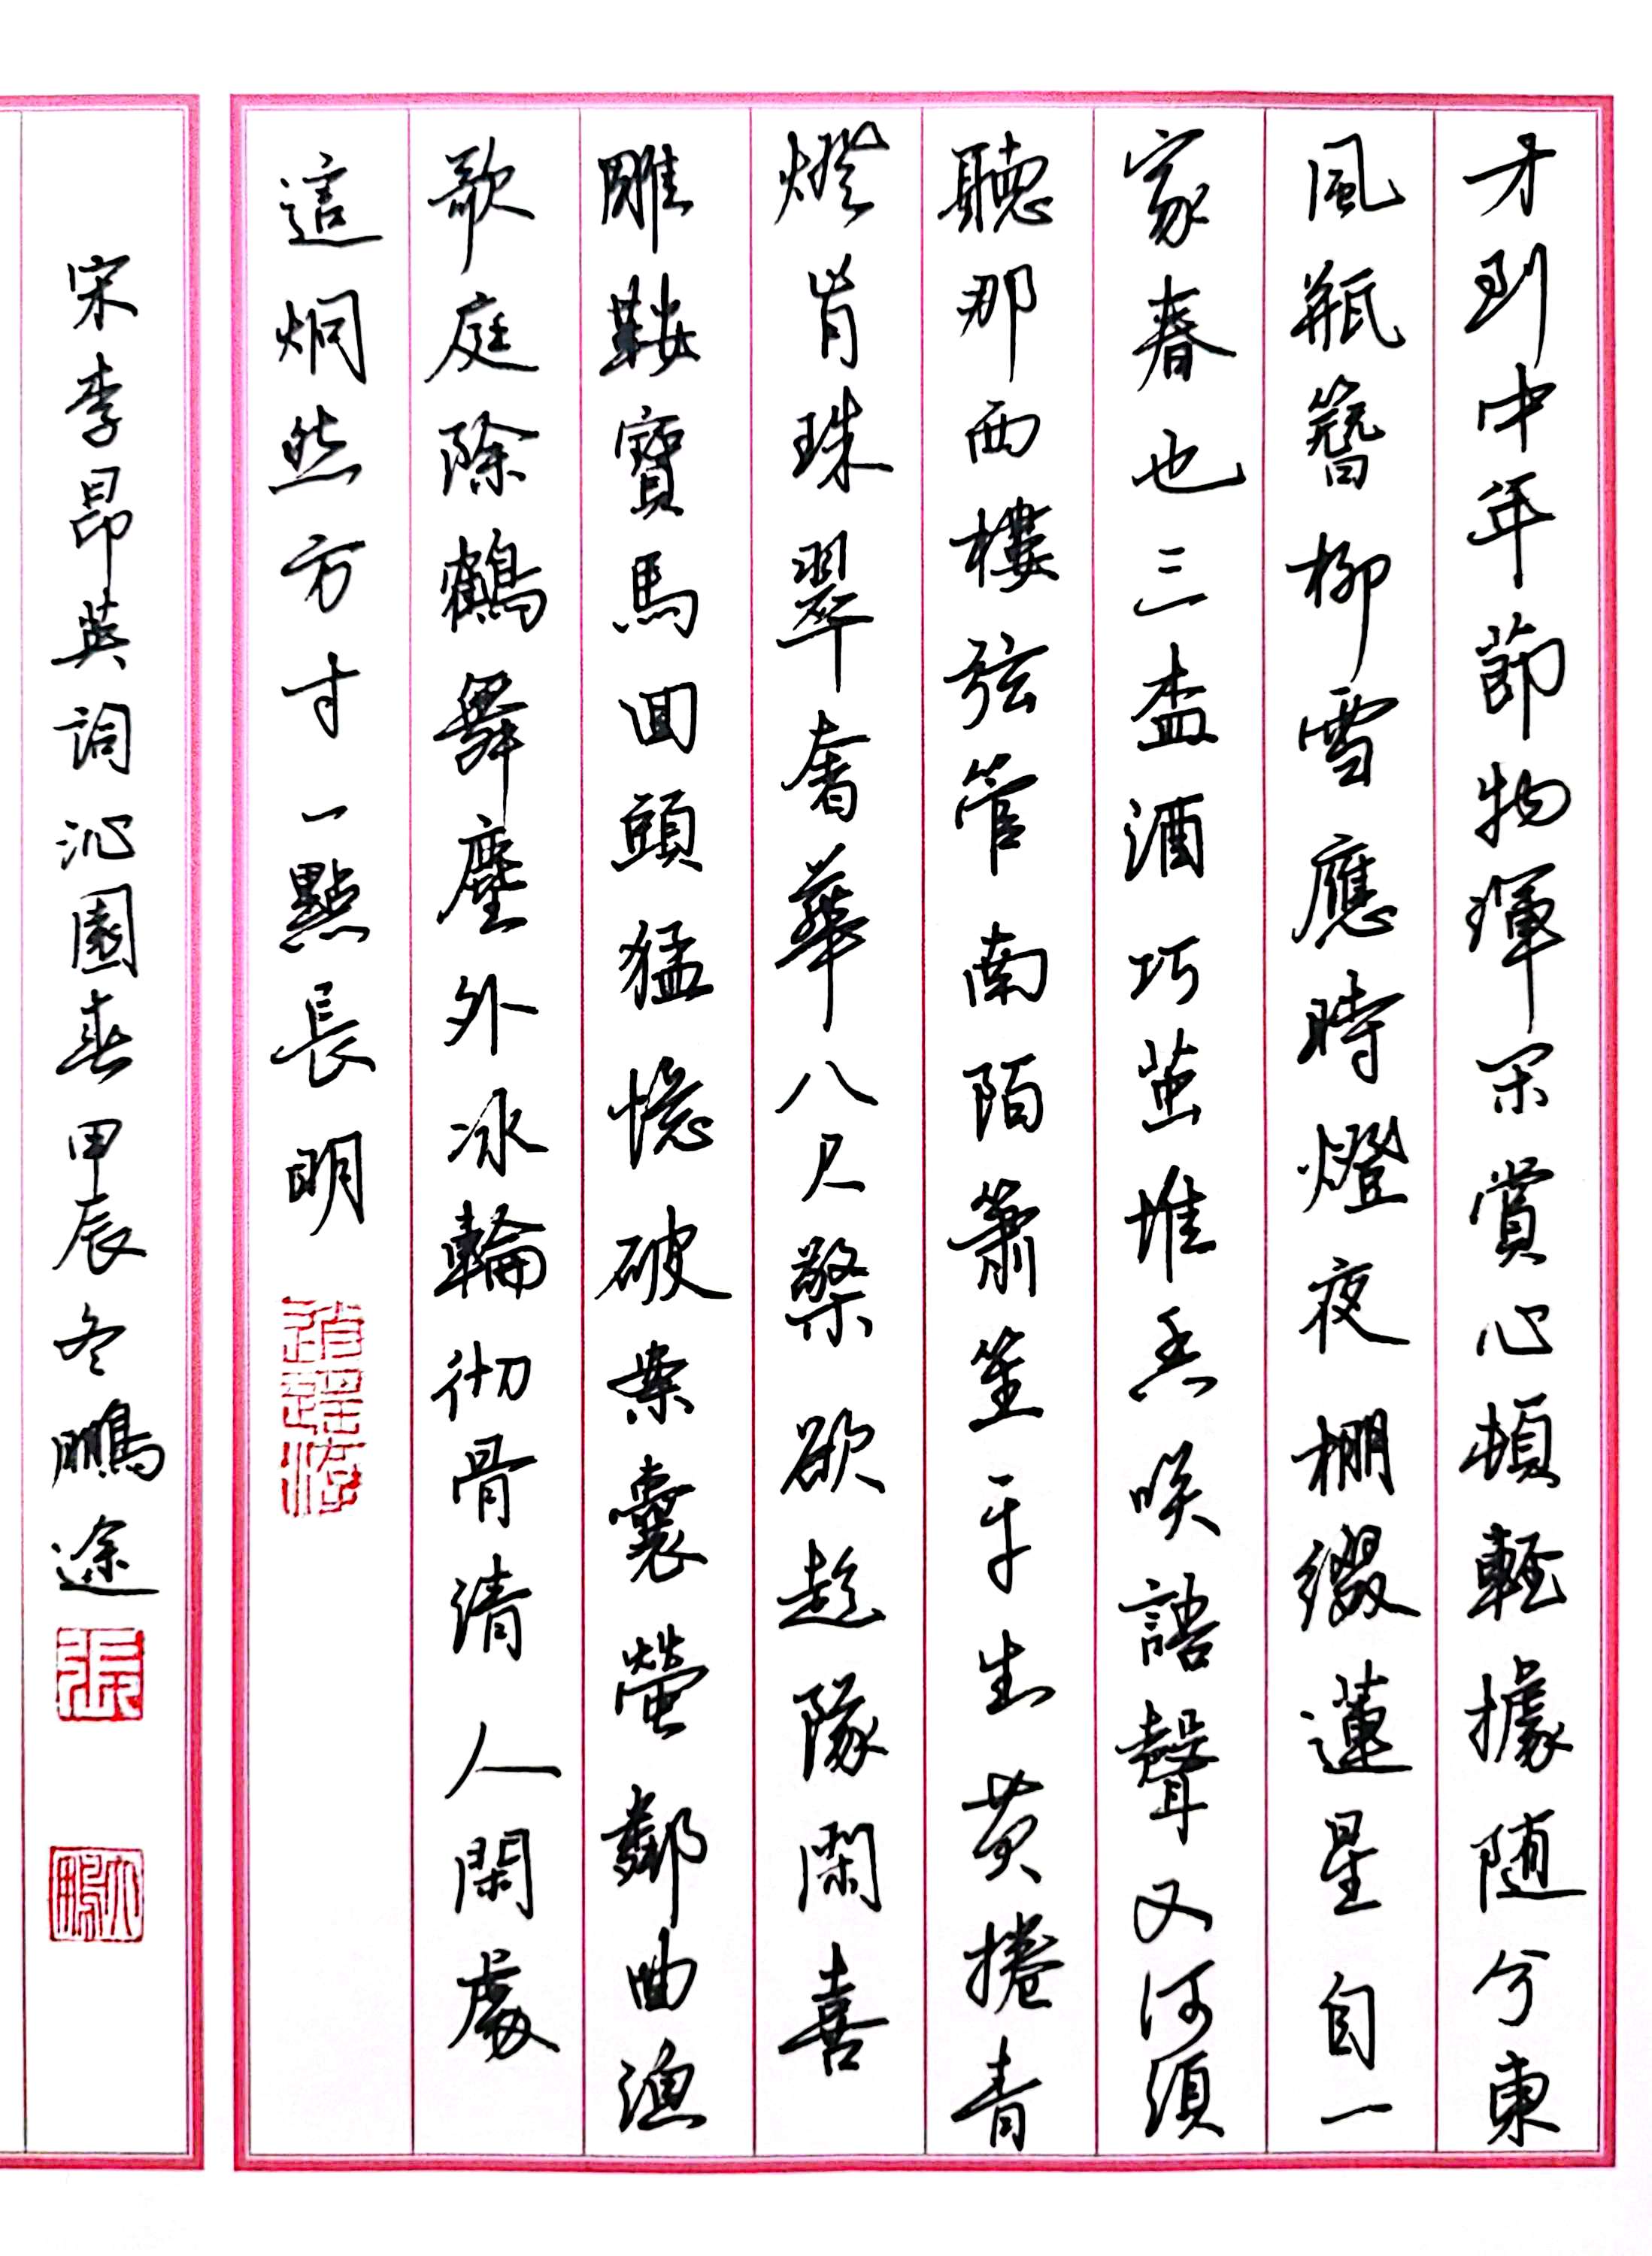 才到中年節物渾閑賞心頓輕據隨分東
風瓶簪柳雪應時燈夜棚綴蓮星自一
家春也三盃酒巧茧堆香笑語聲又何須
聽那西樓弦管南陌簫笙平生黄捲青
燈肯珠翠奢華八尺檠欲趁隊閑喜
雕鞍寶馬回頭猛憶破案囊螢鄰曲漁
歌庭除鶴舞塵外冰輪彻骨清人閑處
這炯然方寸一點長明
宋李昴英詞沁園春甲辰冬鵬途
張